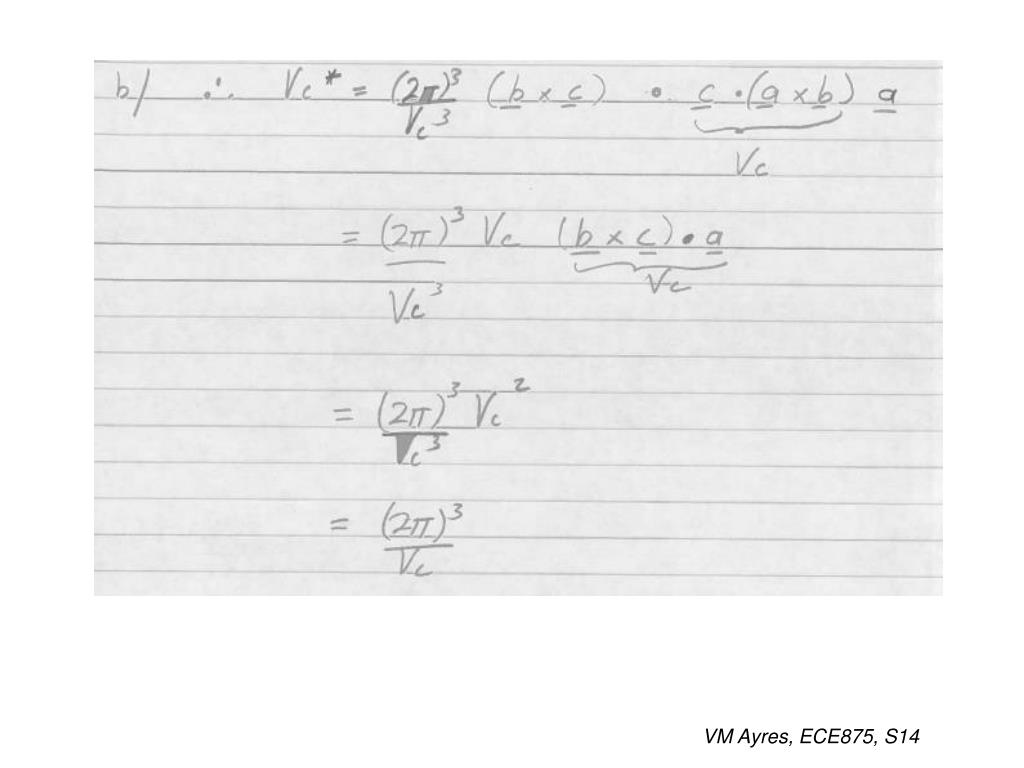 b/ ∴ Vc* = (2π)³/Vc³ (b × c) • c • (a × b) a
Vc
= (2π)³/Vc³ Vc (b × c) • a
Vc
= (2π)³/Vc³ Vc²
= (2π)³/Vc
VM Ayres, ECE875, S14